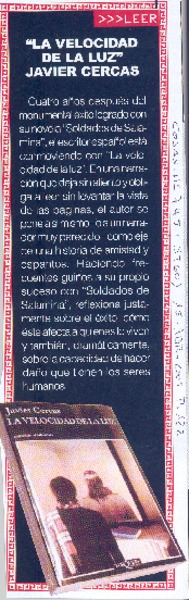 >>>LEER
"LA VELOCIDAD
DE LA LUZ"
JAVIER CERCAS
Cuatro años después del
monumental éxito logrado con
su novela "Soldados de Sala-
mina", el escritor español está
conmoviendo con "La velo-
cidad de la luz". En una narra-
ción que deja sin aliento y obli-
ga a leer sin levantar la vista
de las páginas, el autor se
pone a sí mismo, o a un narra-
dor muy parecido, como eje
de una historia de amistad y
espantos. Haciendo fre-
cuentes guiños a su propio
suceso con "Soldados de
Salamina", reflexiona justa-
mente sobre el éxito, cómo
éste afecta a quienes lo viven
y también, dramáticamente,
sobre la capacidad de hacer
daño que tienen los seres
humanos.
Javier Cercas
LA VELOCIDAD DE LA LUZ